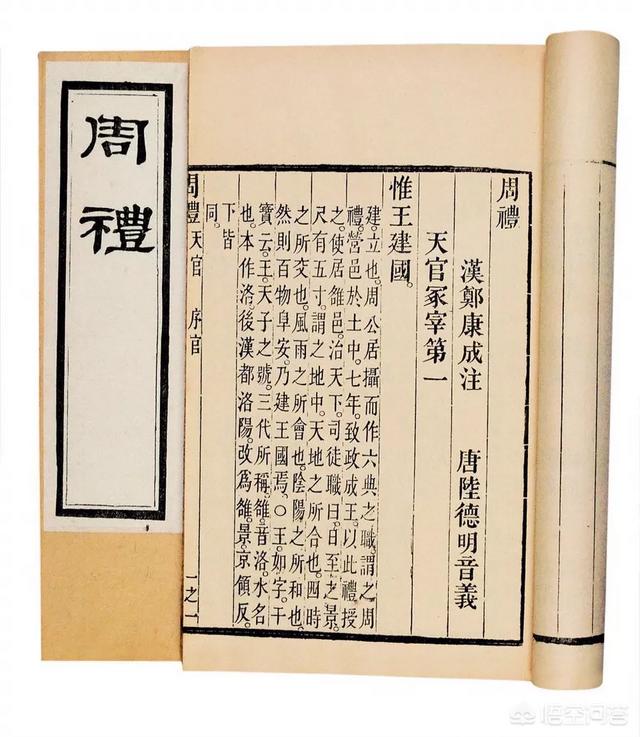 周禮
周禮
漢鄭康成注　唐陸德明音義
天官冢宰第一
惟王建國。
建。立也。周公居攝而作六典之職。謂之周
禮。營邑於土中。七年。致政成王。以此禮授
之。使居雒邑。治天下。司徒職曰。日至之景。
尺有五寸。謂之地中。天地之所合也。四時
之所交也。風雨之所會也。陰陽之所和也。
然則百物阜安。乃建王國焉。○王。如字。干
寶云。王。天子之號。三代所稱。雒。音洛。水名
也。本作洛。後漢都洛陽。改爲雒。景。京領反。
下皆
同。
周禮　天官　序官　一之一
悟空问答